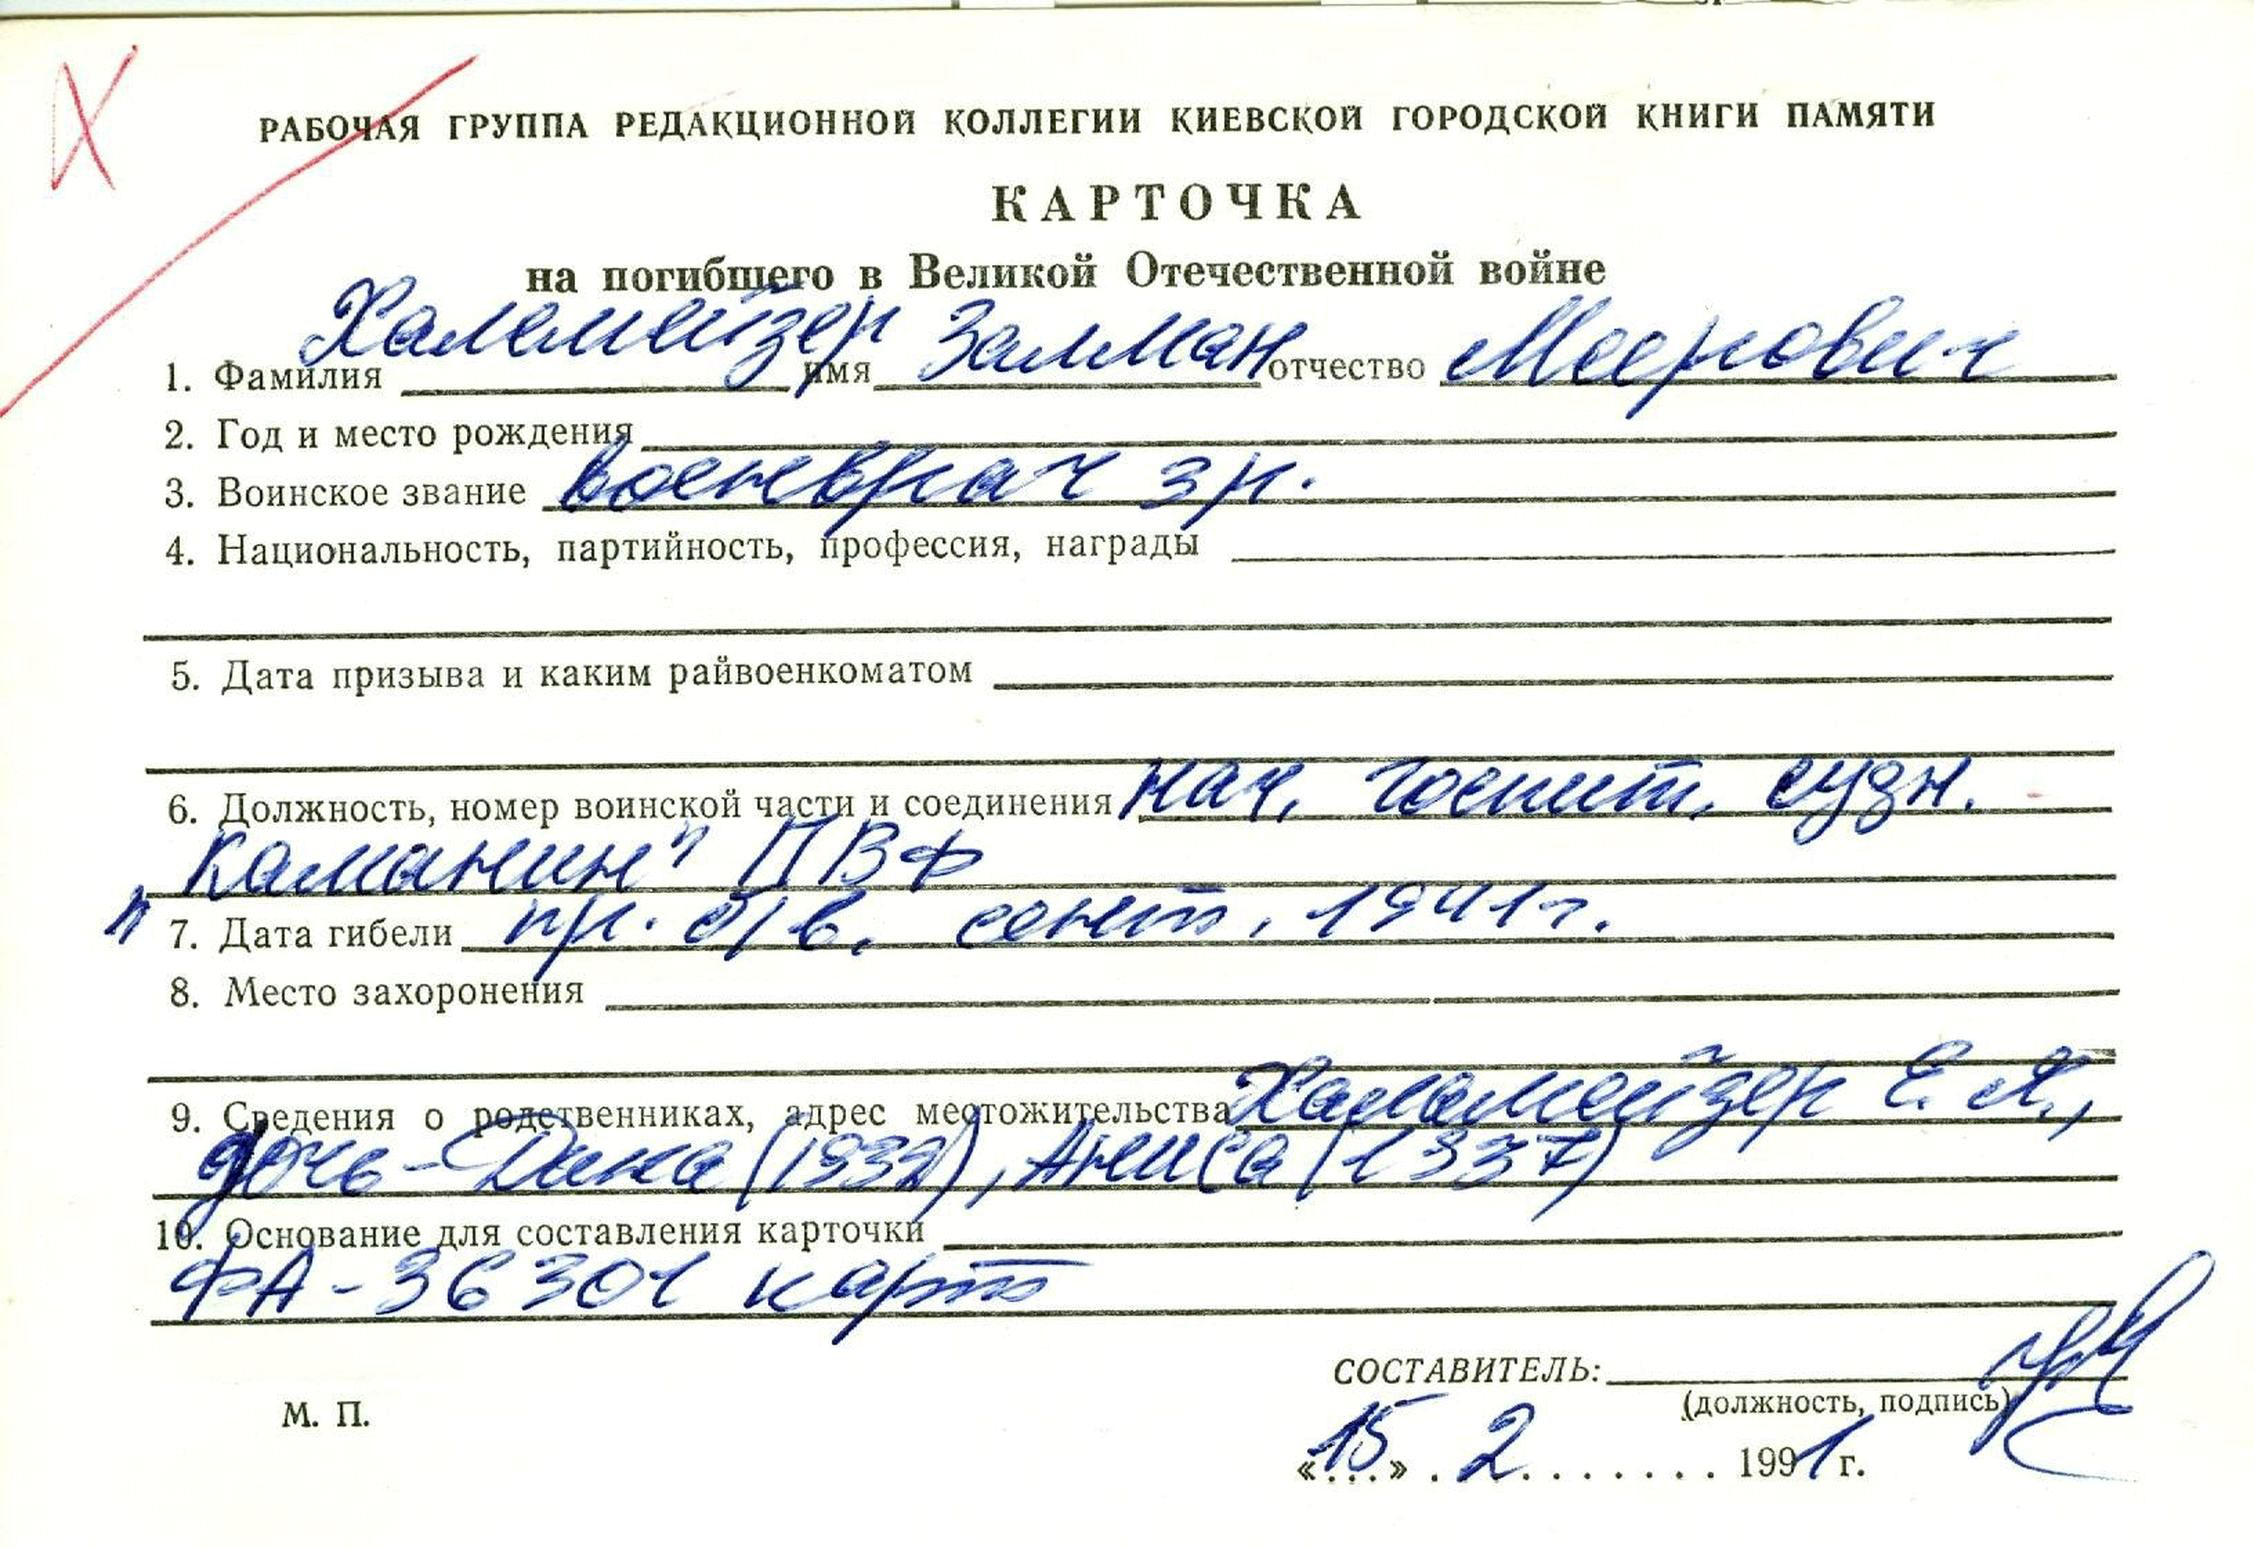 Х
РАБОЧАЯ ГРУППА РЕДАКЦИОННОЙ КОЛЛЕГИИ КИЕВСКОЙ ГОРОДСКОЙ КНИГИ ПАМЯТИ
КАРТОЧКА
на погибшего в Великой Отечественной войне
1. Фамилия Халамейзер имя Залман отчество Меерович
2. Год и место рождения
3. Воинское звание военврач 3 р.
4. Национальность, партийность, профессия, награды
5. Дата призыва и каким райвоенкоматом
6. Должность, номер воинской части и соединения нач. госпит. судн.
"Каманин" ПВФ
7. Дата гибели пр. б/в. сент. 1941 г.
8. Место захоронения
9. Сведения о родственниках, адрес местожительства Халамейзер Е. Я.,
дочь - Дина (1932), Аниса (1937)
10. Основание для составления карточки
ФА - 36301 карт
СОСТАВИТЕЛЬ:
(должность, подпись)
М. П.
«15» . 2 . . . . . . . 1991 г.